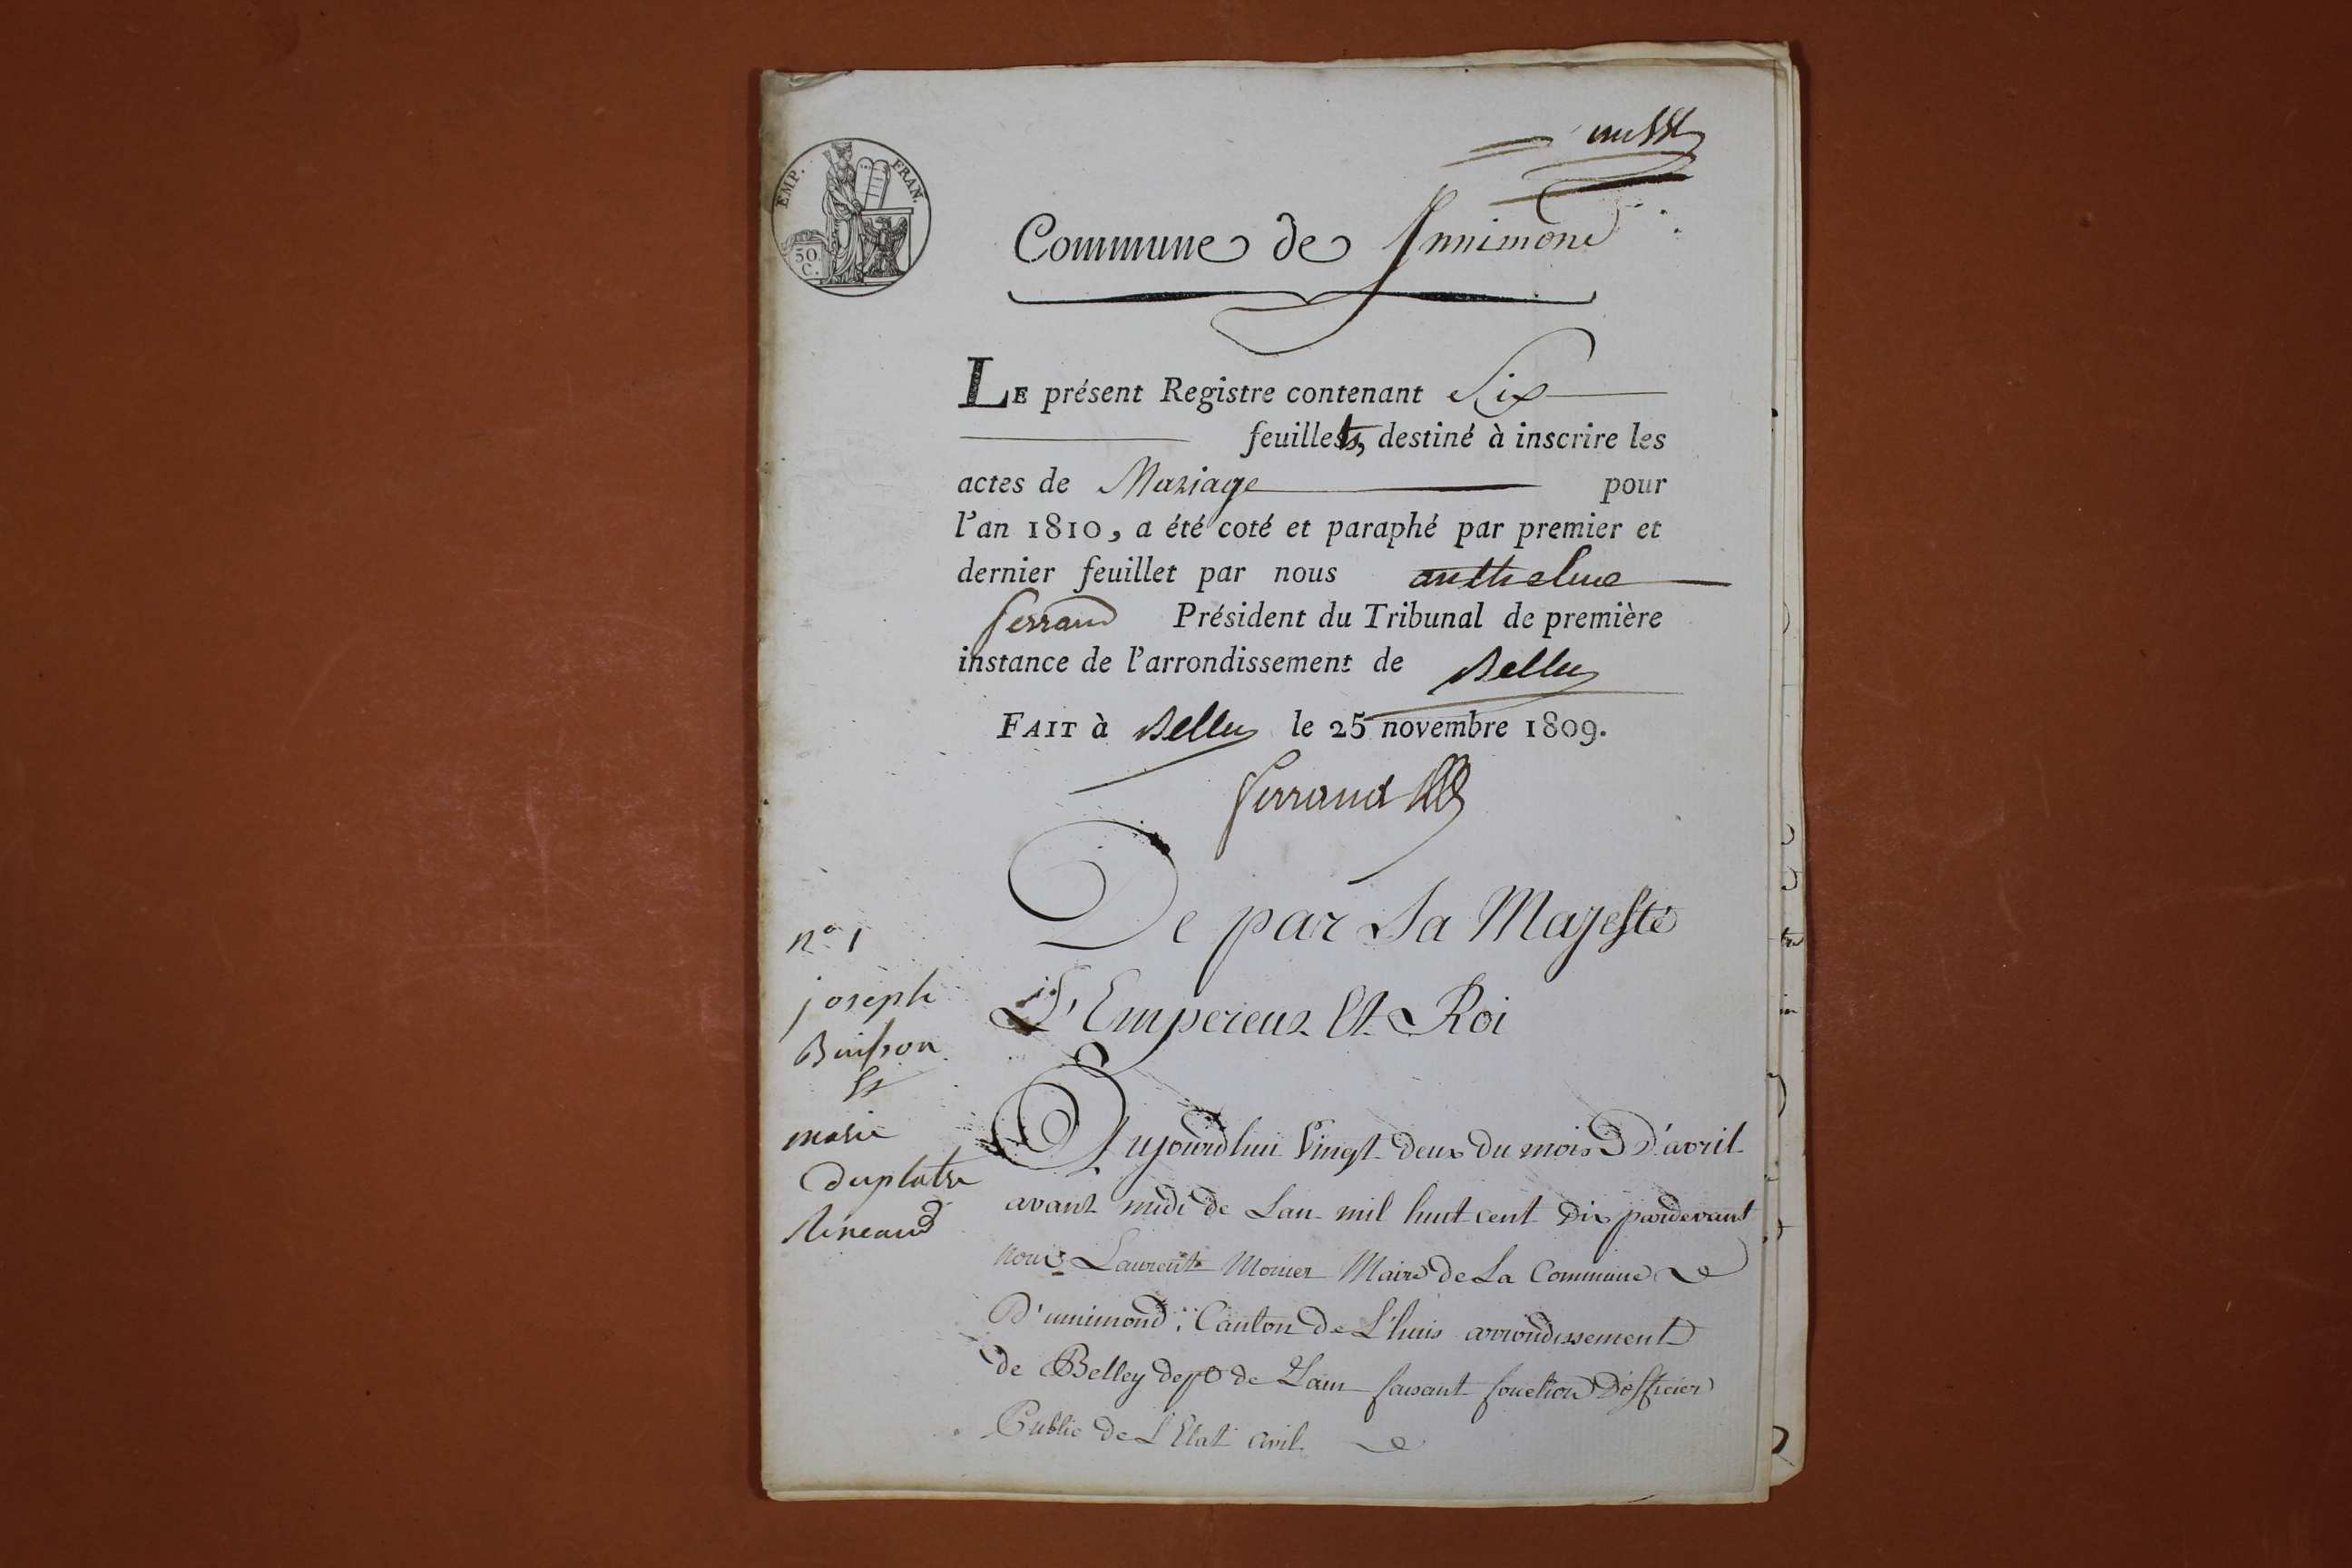 EMP. FRAN.
30
C.
Commune de Innimond
LE présent Registre contenant Six
feuillets, destiné à inscrire les
actes de Mariage pour
l'an 1810, a été coté et paraphé par premier et
dernier feuillet par nous anthelme
ferrand Président du Tribunal de première
instance de l'arrondissement de Belley
FAIT à Belley le 25 novembre 1809.
ferrand
De par Sa Majesté
L'Empereur Et Roi
n° 1
joseph
Buisson
Et
marie
duplatre
Reneaud
Aujourdhui Vingt deux du mois D'avril
avant midi de Lan mil huit cent Dix pardevant
nous Laurent Monier Maire de La Commune
D'innimond, Canton de L'huis arrondissement
de Belley dept de Lain faisant fonction D'officier
Public de L'Etat civil.